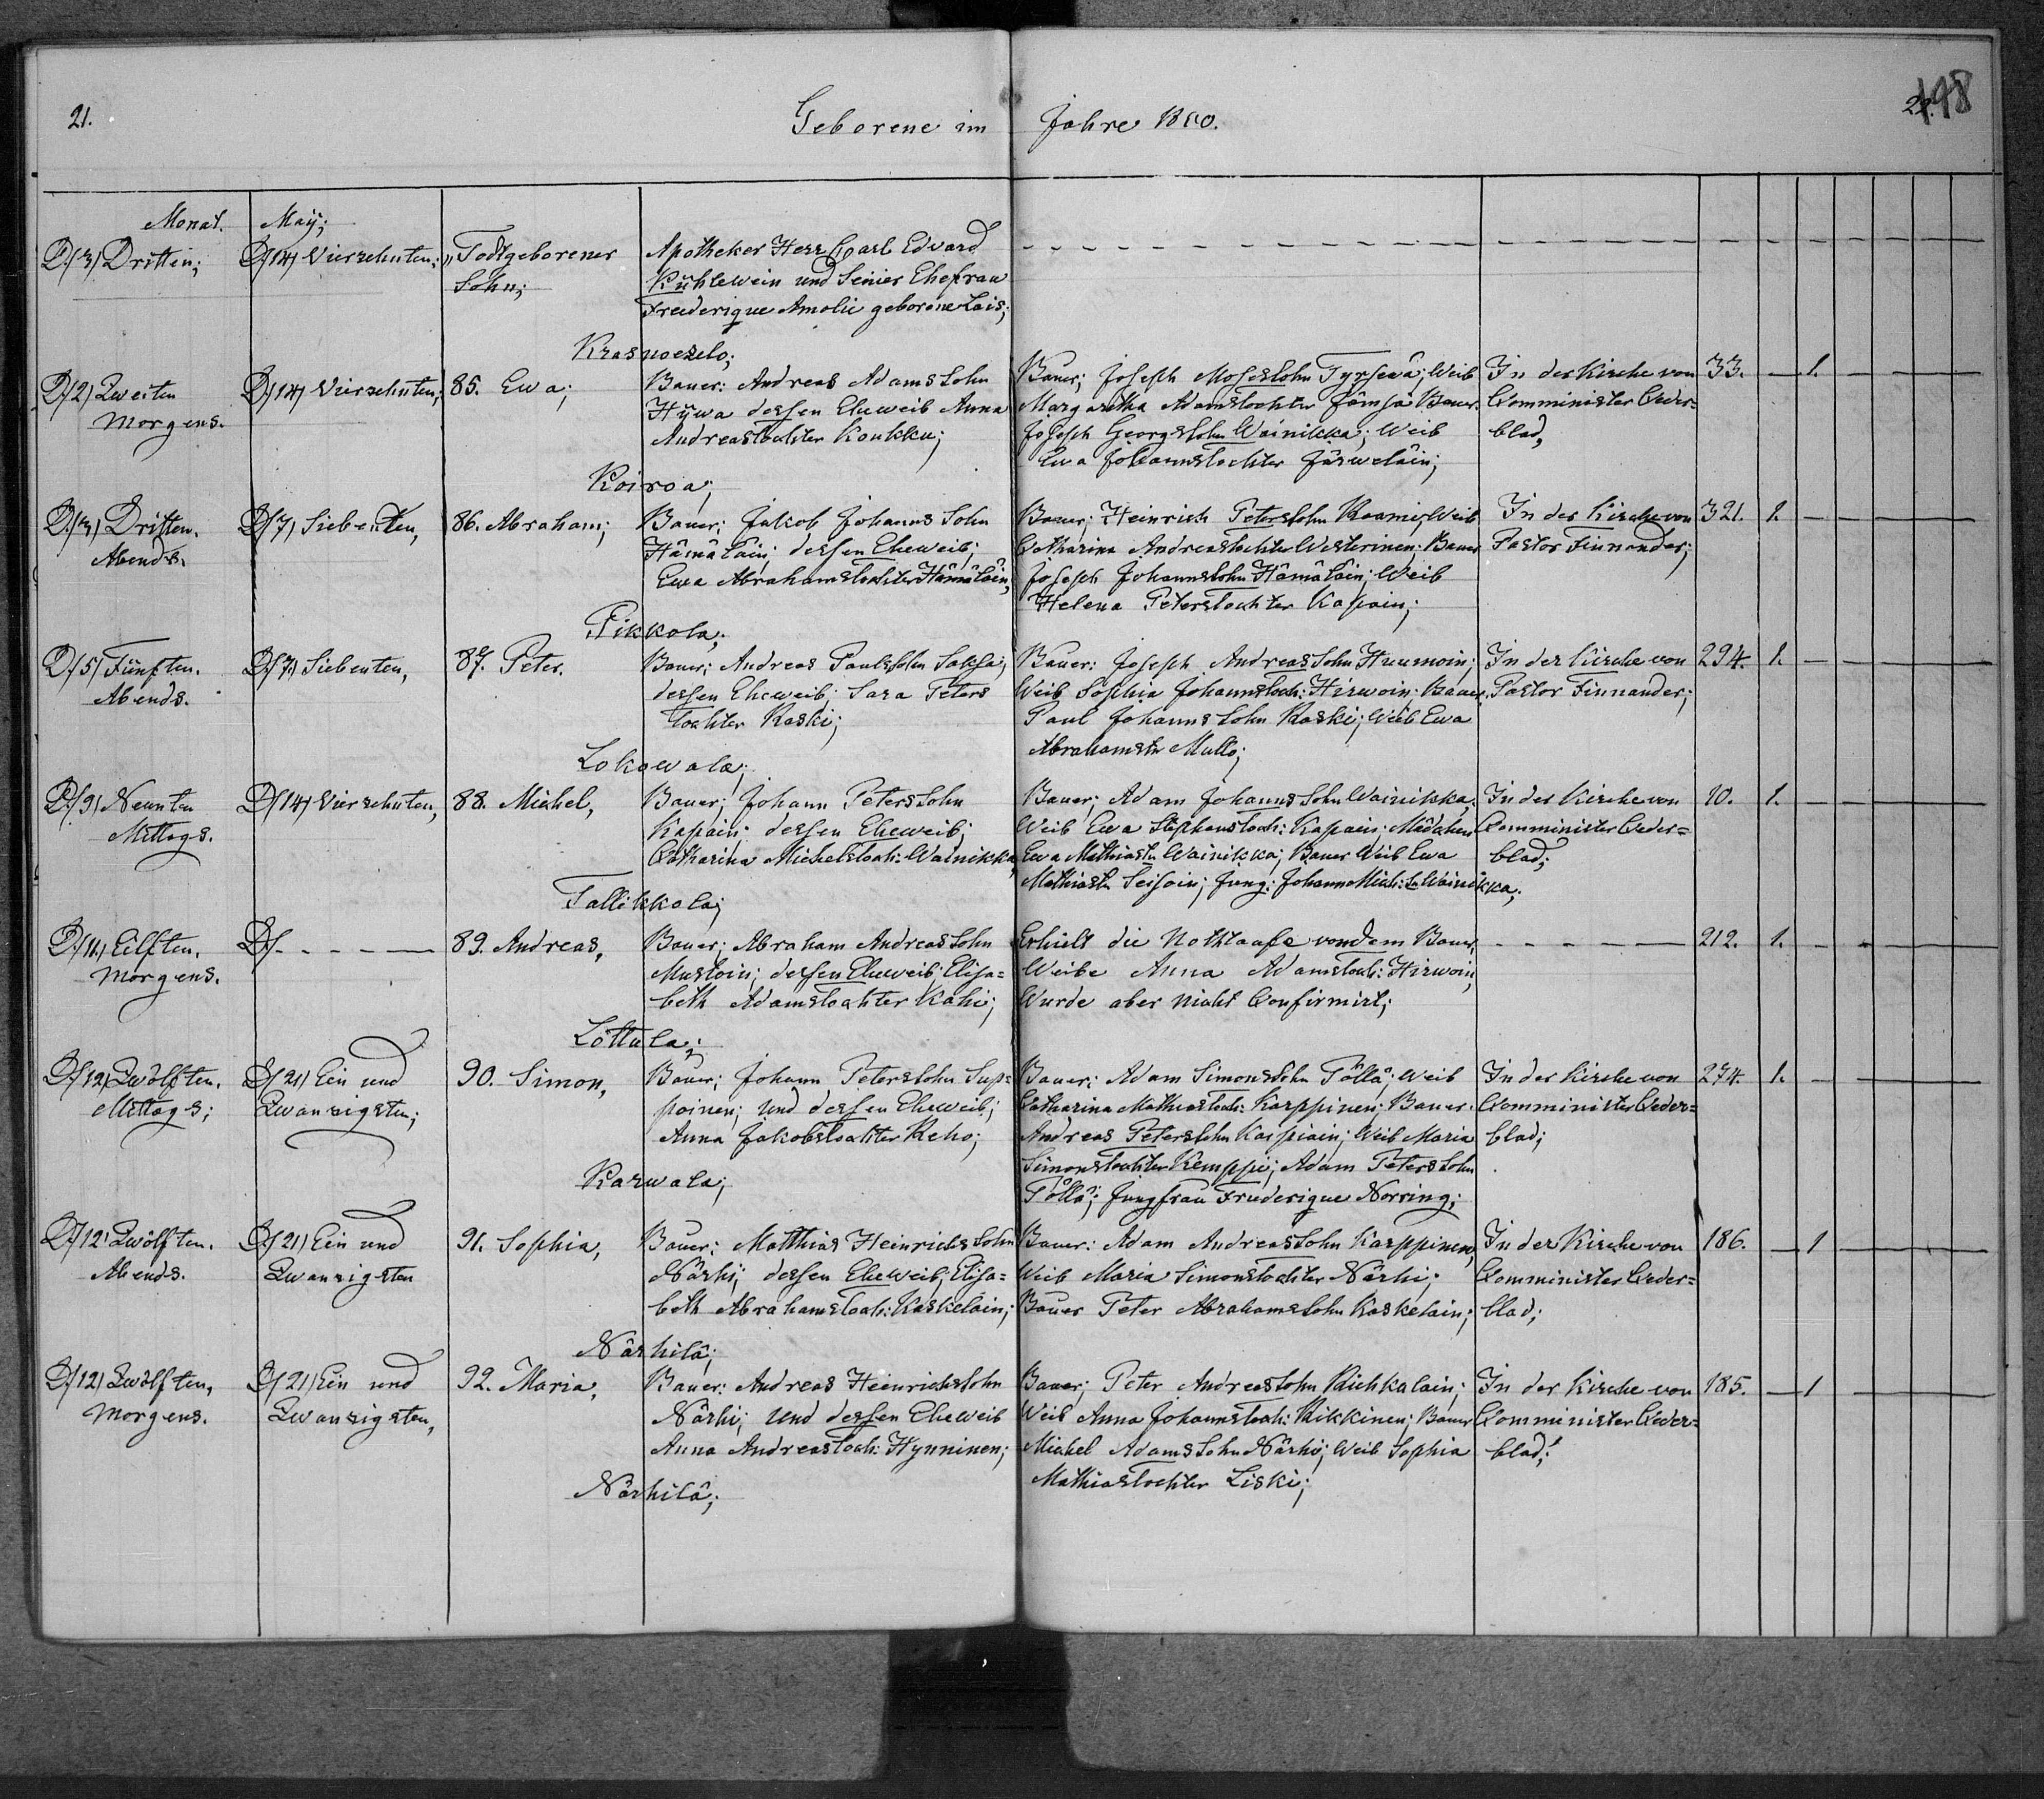 21.
Geborene im Jahre 1850.
22.
198
Monat. May;
D/3/ Dritten; D/14/ Vierzehnten; „Todtgeborener Apotheker Herr Carl Edvard
Sohn; Kühlewein und Seiner Ehefrau
Frederique Amolie geborene Lais;
Krasnoezelo;
D/2/ Zweiten D/14/ Vierzehnten; 85. Ewa; Bauer: Andreas Adams Sohn Bauer; Joseph Moses Sohn Tyrsewä; Weib In der Kirche von 33. — 1.
Morgens. Hÿwa dessen Eheweib Anna Margaretha Adamstochter Jämsä Bauer. Comminister Ceder=
Andreastochter Koukku; Joseph Georgssohn Wainikka; Weib blad,
Ewa Johannstochter Järweläin;
Koiroa;
D/3/ Dritten. D/7/ Siebenten, 86. Abraham; Bauer; Jakob Johanns Sohn Bauer; Heinrich Peterssohn Roomi; Weib In der Kirche von 321. 1.
Abends. Hämäläin; dessen Eheweib; Catharina Andreastochter Westerinen; Bauer Pastor Finnander;
Ewa Abrahamstochter Hämäläin; Joseph Johannssohn Hämäläin; Weib
Helena Peterstochter Kapain;
Pikkola;
D/5/ Fünften. D/7/ Siebenten, 87. Peter. Bauer: Andreas Paulssohn Saksa; Bauer: Joseph Andreas Sohn Huumoin; In der Kirche von 294. 1.
Abends. dessen Eheweib; Sara Peters Weib Sophia Johannstoch: Hirwoin; Bauer. Pastor Finnander;
tochter Raski; Paul Johanns Sohn Raski; Weib Ewa
Abrahamstr Mullo;
Lokowala;
D/9/ Neunten D/14/ Vierzehnten, 88. Michel, Bauer; Johann Peters Sohn Bauer; Adam Johanns Sohn Wainikka; In der Kirche von 10. 1.
Mittags. Kapain; dessen Eheweib; Weib Ewa Stephanstoch: Kapain; Mädchen Comminister Ceder=
Catharina Michelstoch: Wainikka, Ewa Mathiastr Wainikka; Bauer Weib Ewa blad;
Mathiastr Seisoin; Jung: Johann Mich: S. Wainikka;
Tallikkola;
D/11/ Eilften. D/ 89. Andreas, Bauer; Abraham Andreas Sohn Erhielt die Nothtaufe von dem Bauer 212. 1.
Morgens. Mustoin; dessen Eheweib; Elisa= Weibe Anna Adamstoch: Hirwoin,
beth Adamstochter Kähi; Wurde aber nicht Confirmirt;
Löttula;
D/12/ Zwölften. D/21/ Ein und 90. Simon, Bauer; Johann Peterssohn Sup= Bauer: Adam Simonssohn Pöllä; Weib In der Kirche von 274. 1.
Mittags; Zwanzigsten; poinen; und dessen Eheweib; Catharina Mathiastoch: Karppinen; Bauer. Comminister Ceder=
Anna Jakobstochter Reho; Andreas Peterssohn Kaipiain; Weib Maria blad;
Simonstochter Kemppi; Adam Peters Sohn
Pöllä; Jungfrau Frederique Norring;
Karwala;
D/12/ Zwölften. D/21/ Ein und 91. Sophia, Bauer: Matthias Heinrichs Sohn Bauer: Adam Andreassohn Karppinen, In der Kirche von 186. — 1
Abends. Zwanzigsten Närhi; dessen Eheweib; Elisa= Weib Maria Simonstochter Närhi; Comminister Ceder=
beth Abrahamstoch: Kaskelain; Bauer Peter Abrahamssohn Kaskelain; blad;
Närhilä;
D/12/ Zwölften, D/21/ Ein und 92. Maria, Bauer: Andreas Heinrichssohn Bauer; Peter Andreassohn Richkalain; In der Kirche von 185. — 1
Morgens. Zwanzigsten, Närhi; und dessen Eheweib Weib Anna Johannstoch: Rikkinen; Bauer Comminister Ceder=
Anna Andreastoch: Hynninen; Michel Adams Sohn Närhi; Weib Sophia blad;
Mathiastochter Liski;
Närhilä;